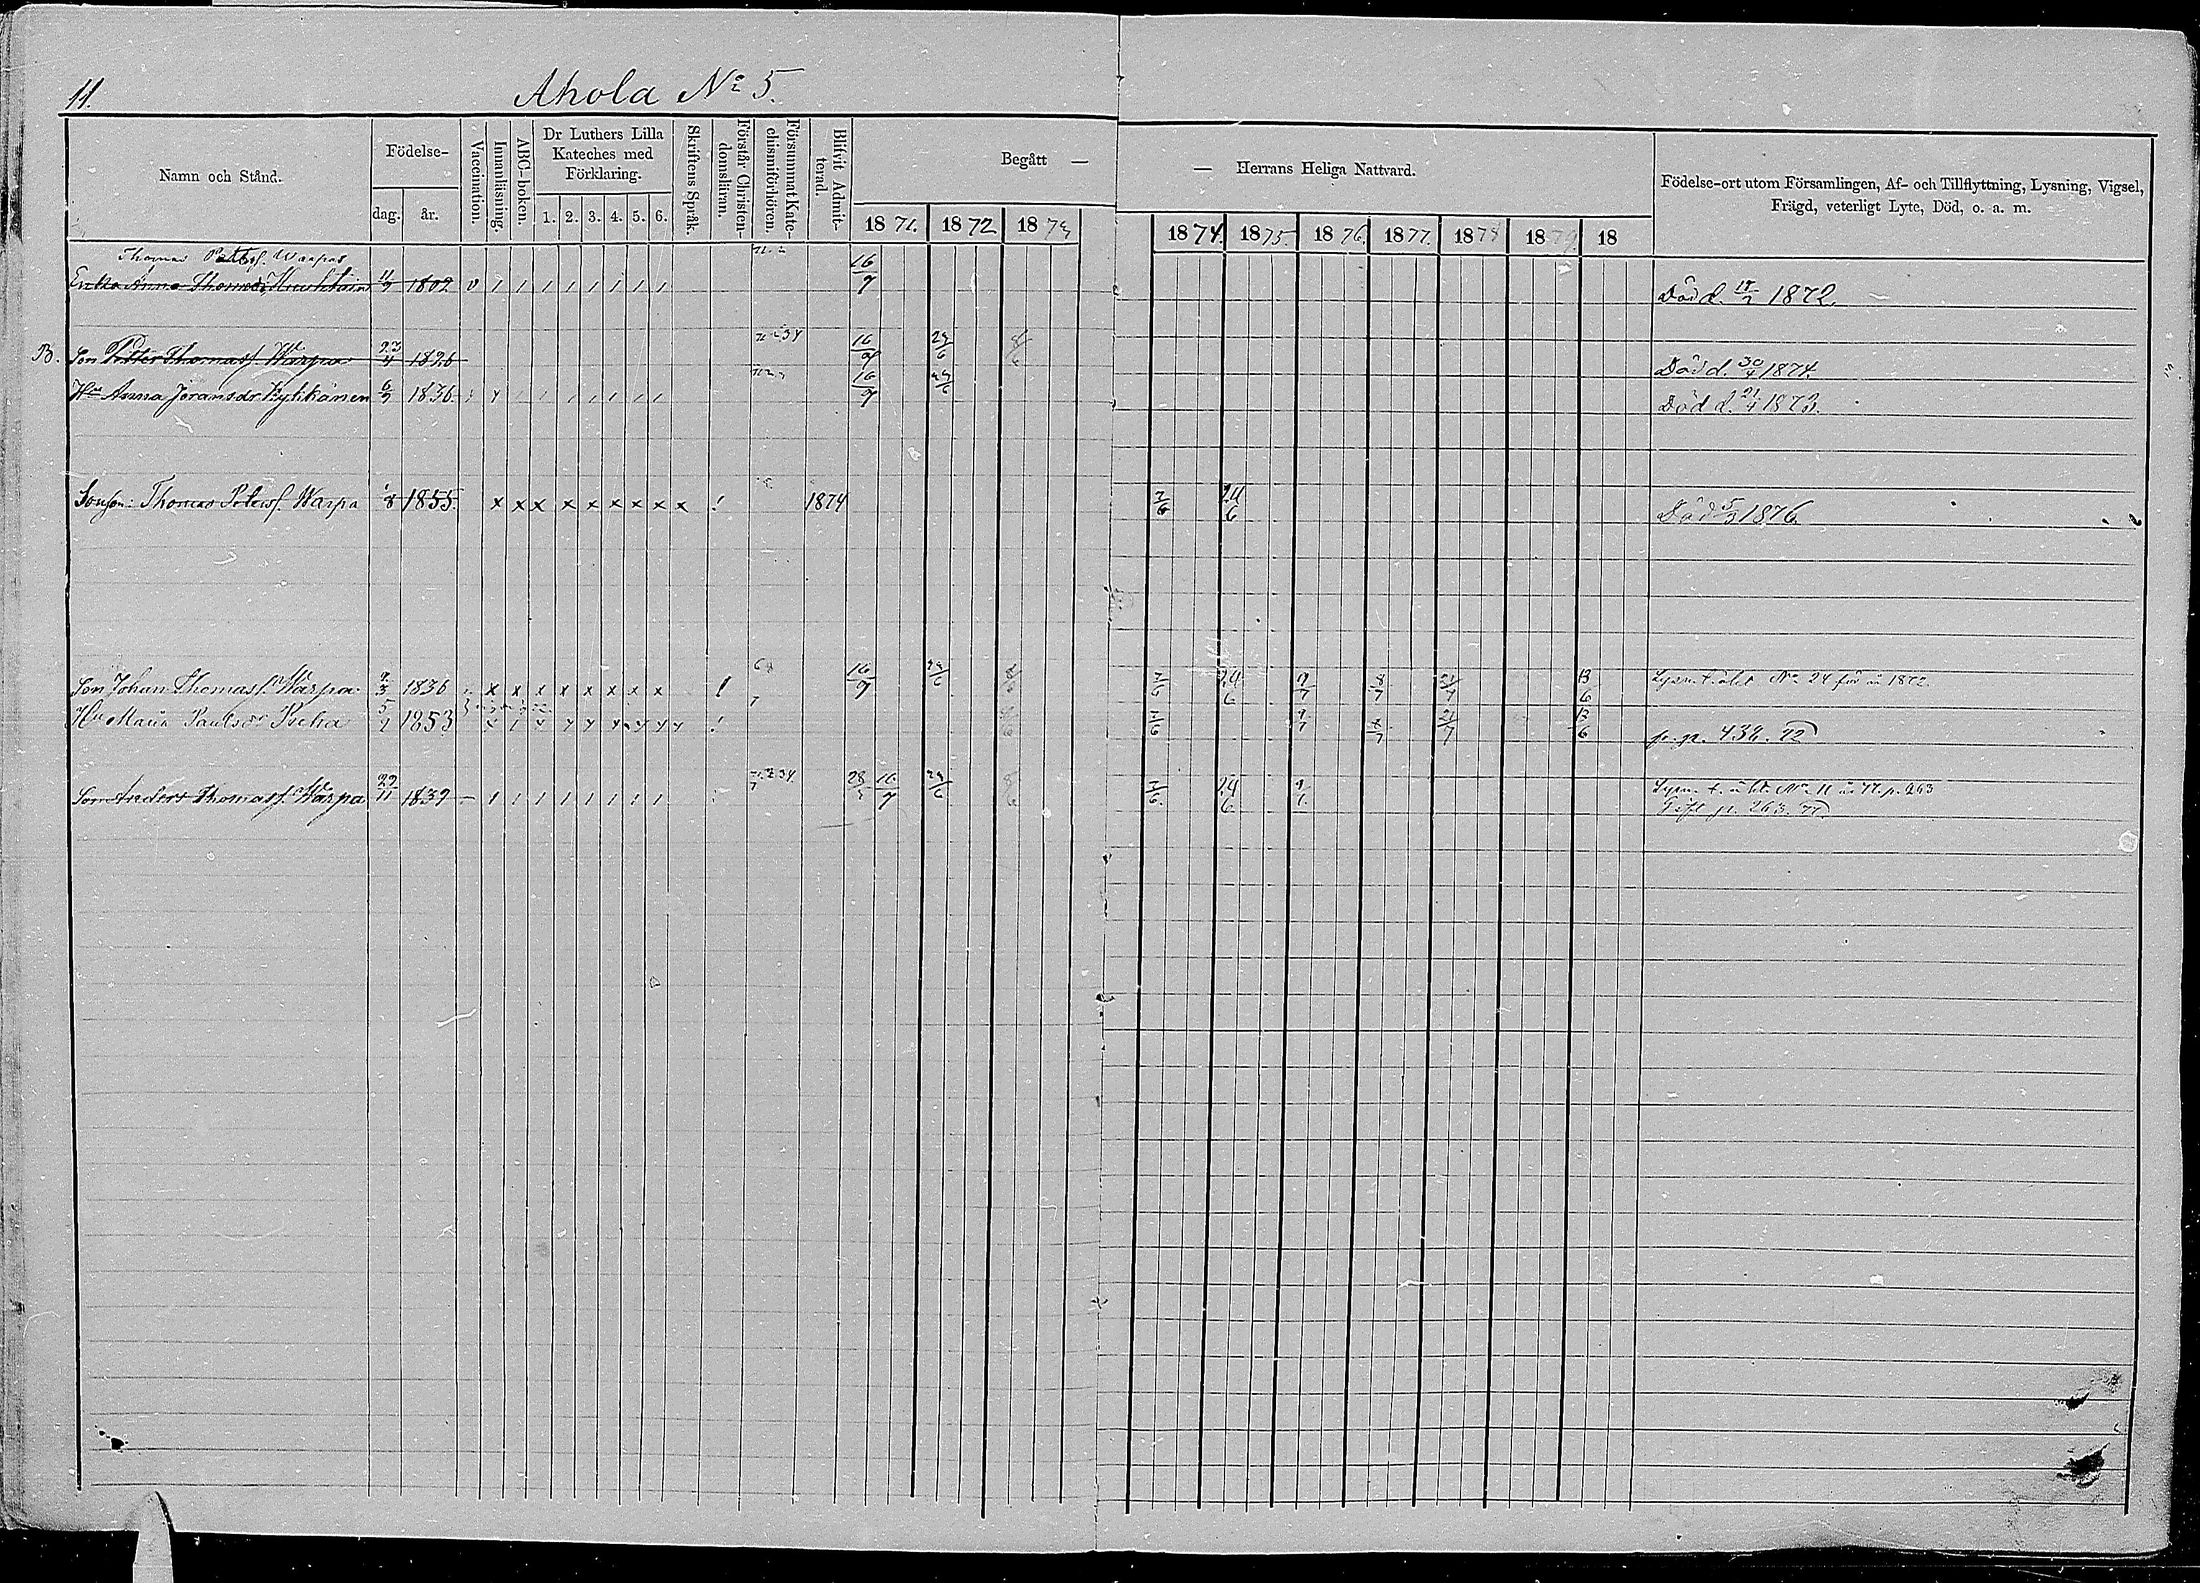 11.
Ahola No 5.
Namn och Stånd.
Födelse-
dag.
år.
Vaccination.
Innanläsning.
ABC-boken.
Dr Luthers Lilla
Kateches med
Förklaring.
1. 2. 3. 4. 5. 6.
Skriftens Språk.
Förstår Christen-
domsläran.
Försummat Kate-
chismiförhören.
Blifvit Admit-
terad.
Begått —
— Herrans Heliga Nattvard.
1871. 1872 1873
1874. 1875. 1876. 1877. 1878 1879. 18
Födelse-ort utom Församlingen, Af- och Tillflyttning, Lysning, Vigsel,
Frägd, veterligt Lyte, Död, o. a. m.
Thomas
Enka Anna Thomasdr 1802 v 1 1 1 1 1 1 1 1 16/7 Död d. 1872
B. Son Petter Thomass. Warpa 23/4 1826 16/7 29/6 8/6 Död d. 30/4 1874.
Hu Anna Jöransdr Kylikänen 6/7 1836 16/7 29/6 Död d. 21/4 1873.
Sonson: Thomas Peters. Warpa 1855. x x x x x x x x x x ! 1874 7/6 24/6 Död 5/3 1876.
Son Johan Thomass. Warpa 1836 x x x x x x x x ! 16/7 29/6 8/6 7/6 24/6 9/7 8/7 21/7 13/6 Lysn. t. äkt No 24 för år 1872.
Hu Maria Paulsdr 1853 ! 7/6 9/7 8/7 21/7 13/6 fr. p. 438. 72
Son Anders Thomass. Warpa 22/11 1839 — 1 1 1 1 1 1 1 1 16/7 29/6 8/6 7/6 24/6 9/7. Lysn. t. äkt. No 11 år 77. p. 263
p. 263. 77.